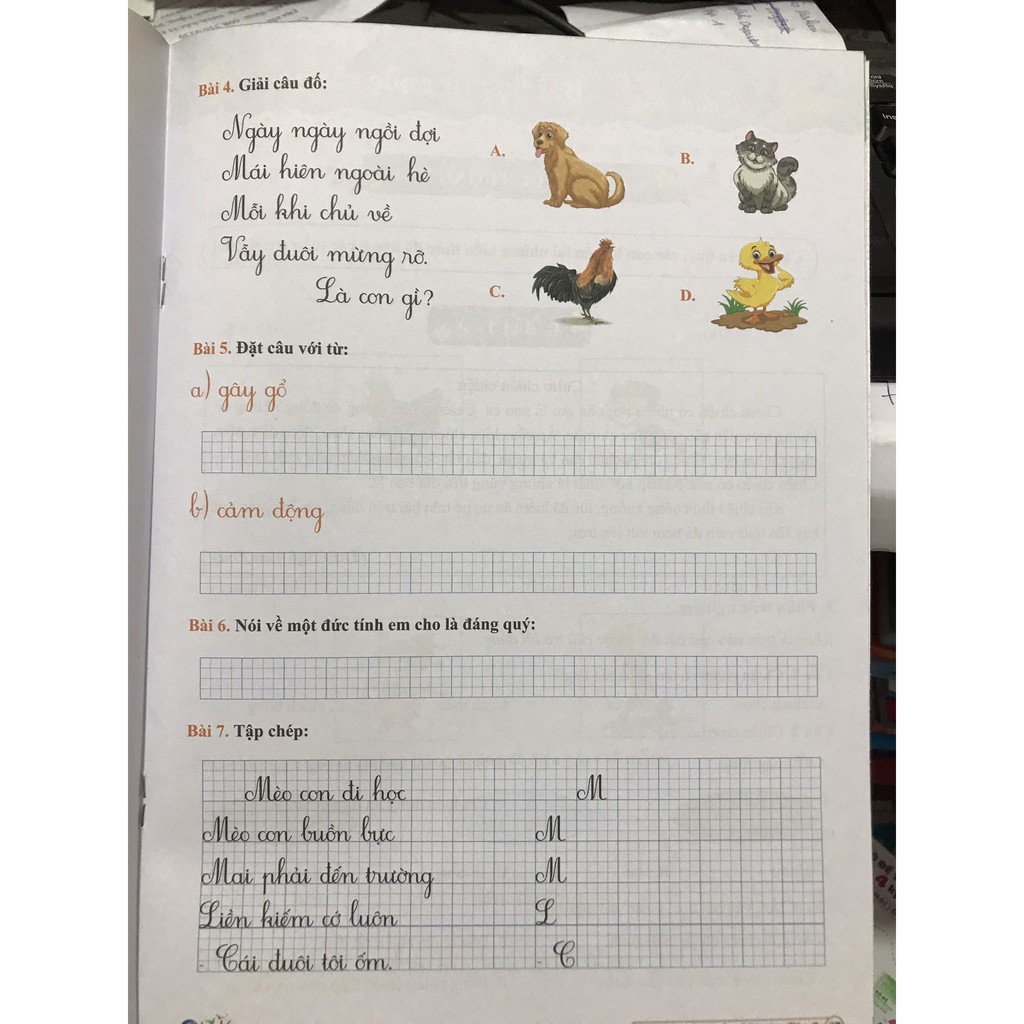 Bài 4. Giải câu đố:
Ngày ngày ngồi đợi
Mái hiên ngoài hè
Mỗi khi chủ về
Vẫy đuôi mừng rỡ.
Là con gì?
A.
B.
C.
D.
Bài 5. Đặt câu với từ:
a) gây gổ
b) cảm động
Bài 6. Nói về một đức tính em cho là đáng quý:
Bài 7. Tập chép:
Mèo con đi học M
Mèo con buồn bực M
Mai phải đến trường M
Liền kiếm cớ luôn L
- Cái đuôi tôi ốm. - C